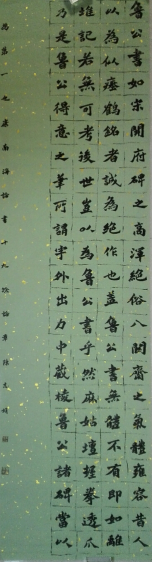 魯公書如宋開府碑之高渾絕俗八關齋之氣體雍容昔人
以為似瘞鶴銘者誠為絕作也蓋魯公書無體不有即如離
堆記若無可考後世豈以為魯公書乎然麻姑壇握拳透爪
乃是魯公得意之筆所謂字外出力中藏棱魯公諸碑當以
為第一也康南海論書十九